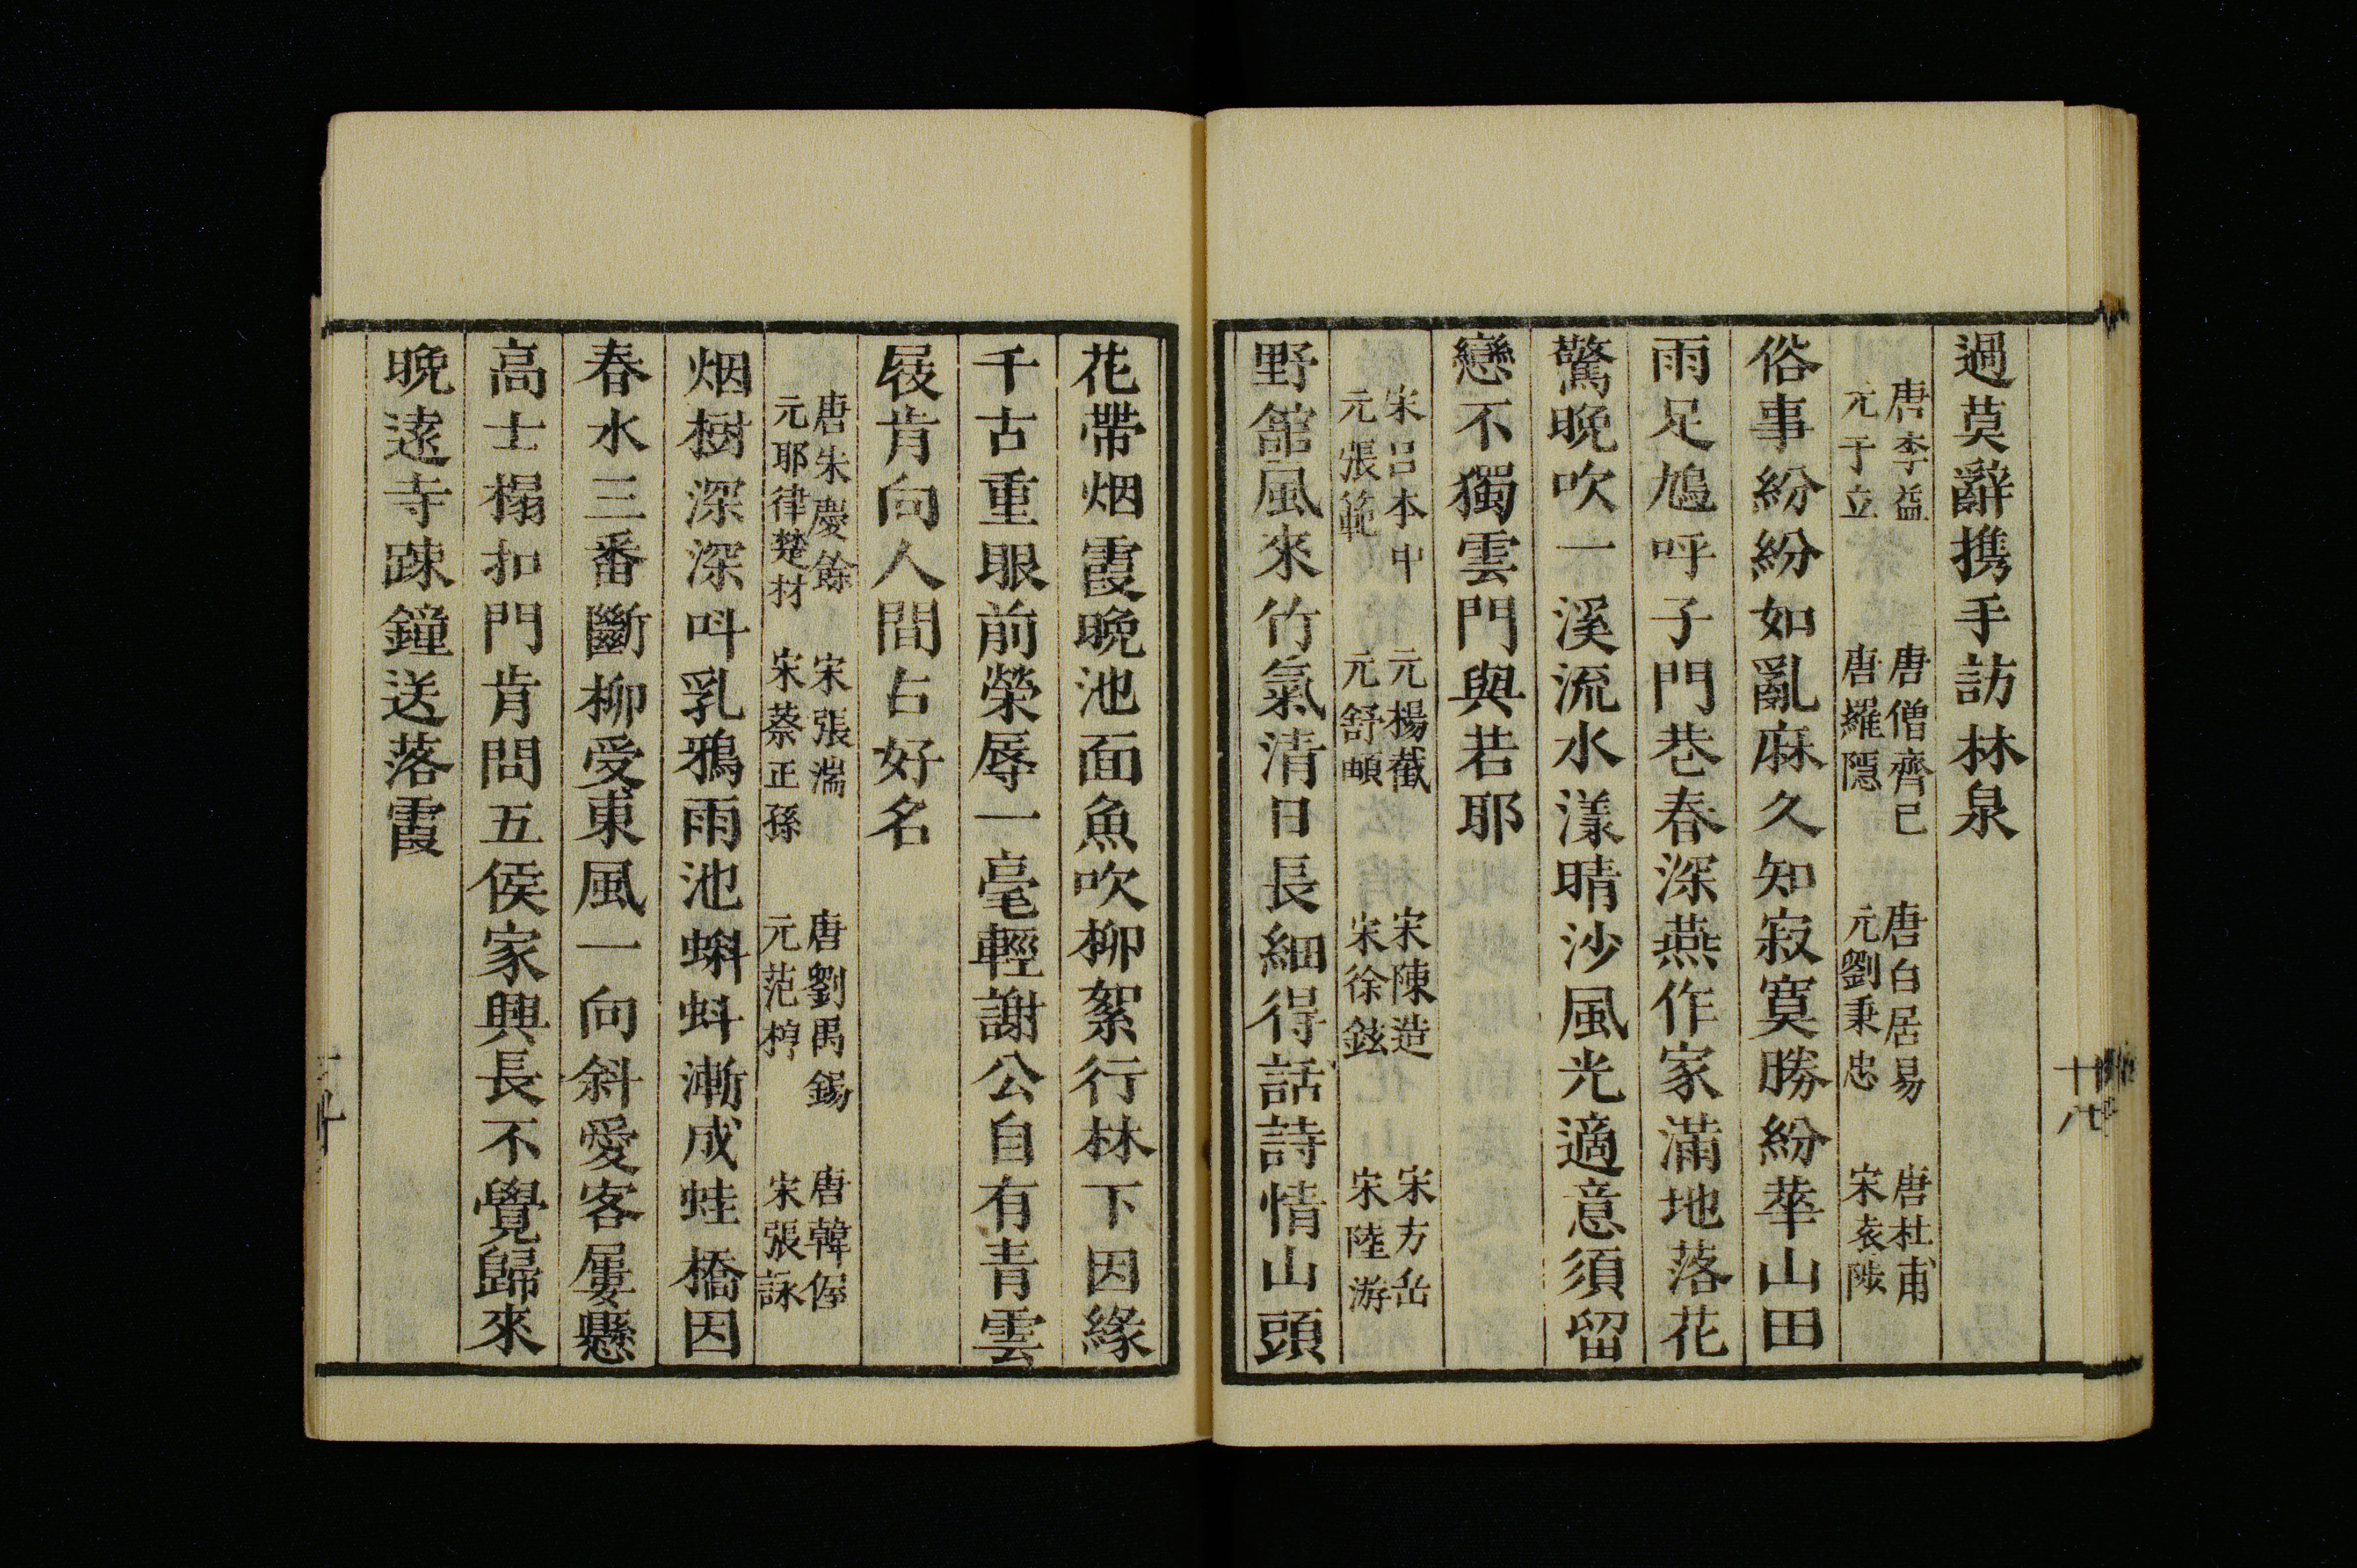 過莫辭携手訪林泉
唐李益　唐僧齊己　唐白居易　唐杜甫
元于立　唐羅隱　元劉秉忠　宋袁陟
俗事紛紛如亂麻久知寂寞勝紛華山田
雨足鳩呼子門巷春深燕作家滿地落花
驚晚吹一溪流水漾晴沙風光適意須留
戀不獨雲門與若耶
宋呂本中　元楊載　宋陳造　宋方岳
元張範　元舒頔　宋徐鉉　宋陸游
野舘風來竹氣清日長細得話詩情山頭
花帶烟霞晚池面魚吹柳絮行林下因緣
千古重眼前榮辱一毫輕謝公自有青雲
屐肯向人間占好名
唐朱慶餘　宋張湍　唐劉禹錫　唐韓偓
元耶律楚材　宋蔡正孫　元范梈　宋張詠
烟樹深深呌乳鴉雨池蝌蚪漸成蛙橋因
春水三番斷柳受東風一向斜愛客屢懸
高士榻扣門肯問五侯家興長不覺歸來
晚遠寺踈鐘送落霞
十八